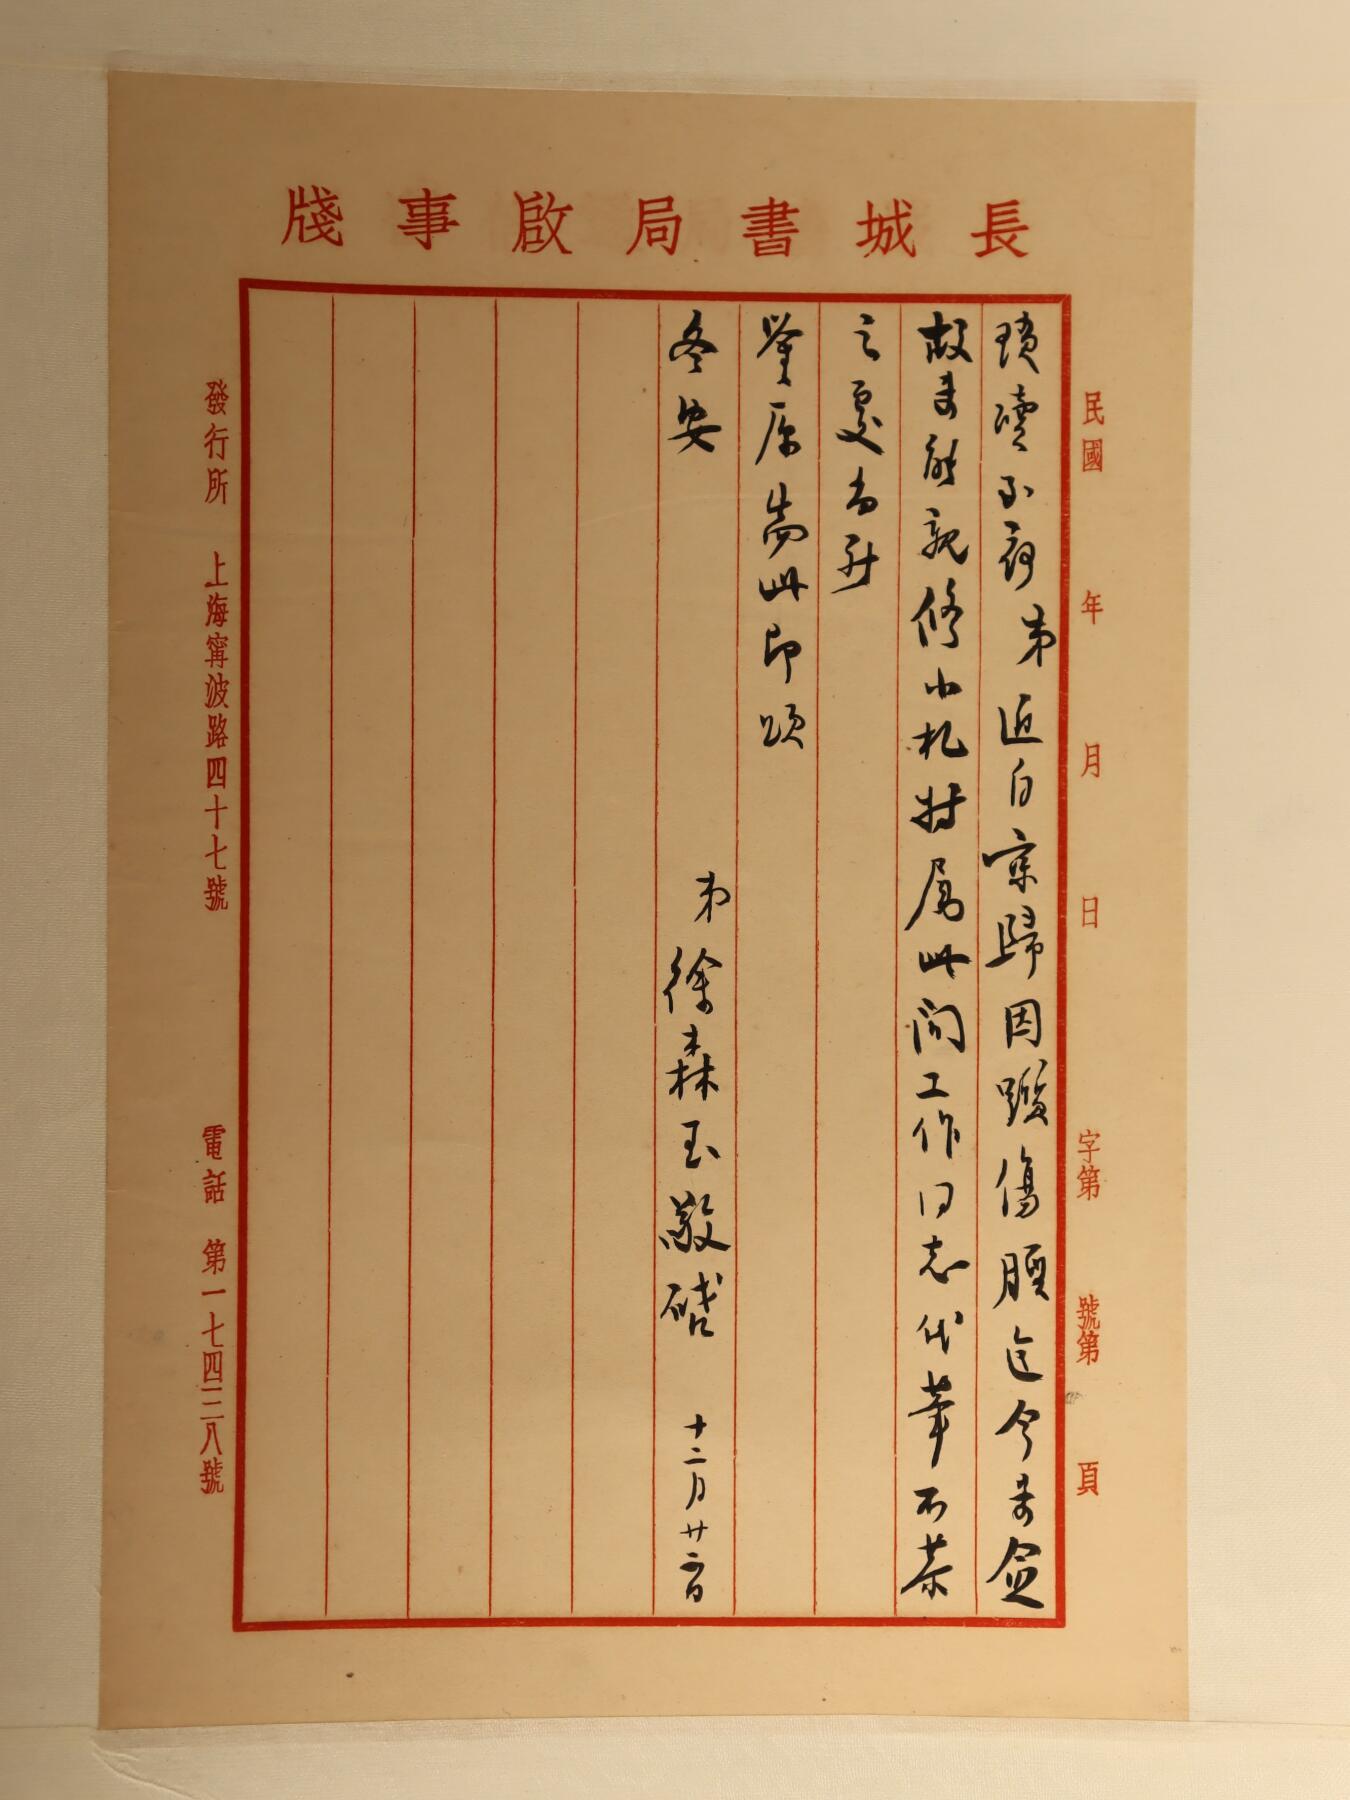 長城書局啟事牋
民國 年 月 日 字第 號第 頁
瑣瀆不尠弟近自京歸因蹉傷腰迄今未愈
故未能親修小札特屬此間工作同志代筆不恭
之處尚祈
鑒原耑此即頌
冬安
弟徐森玉敬啓 十二月廿二日
發行所 上海甯波路四十七號 電話 第一七四三八號